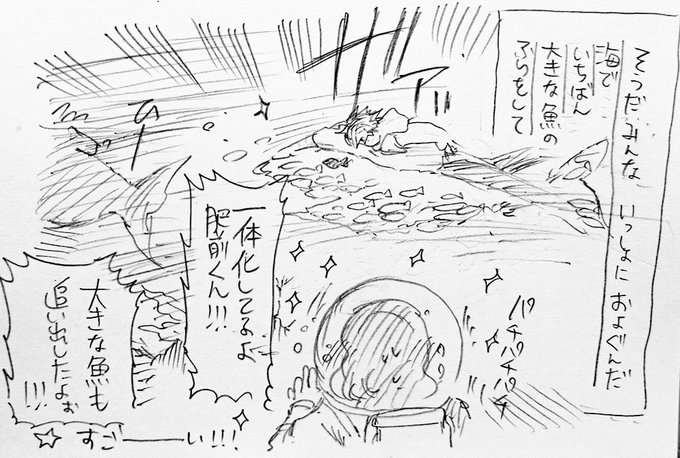 そうだみんな いっしょに およぐんだ
海で
いちばん
大きな魚の
ふりをして
ザアッ
ひー
一体化してるよ
肥前くん!!!
パチパチパチ
大きな魚も
追い出したよぉ
!!!
すごーーい!!!